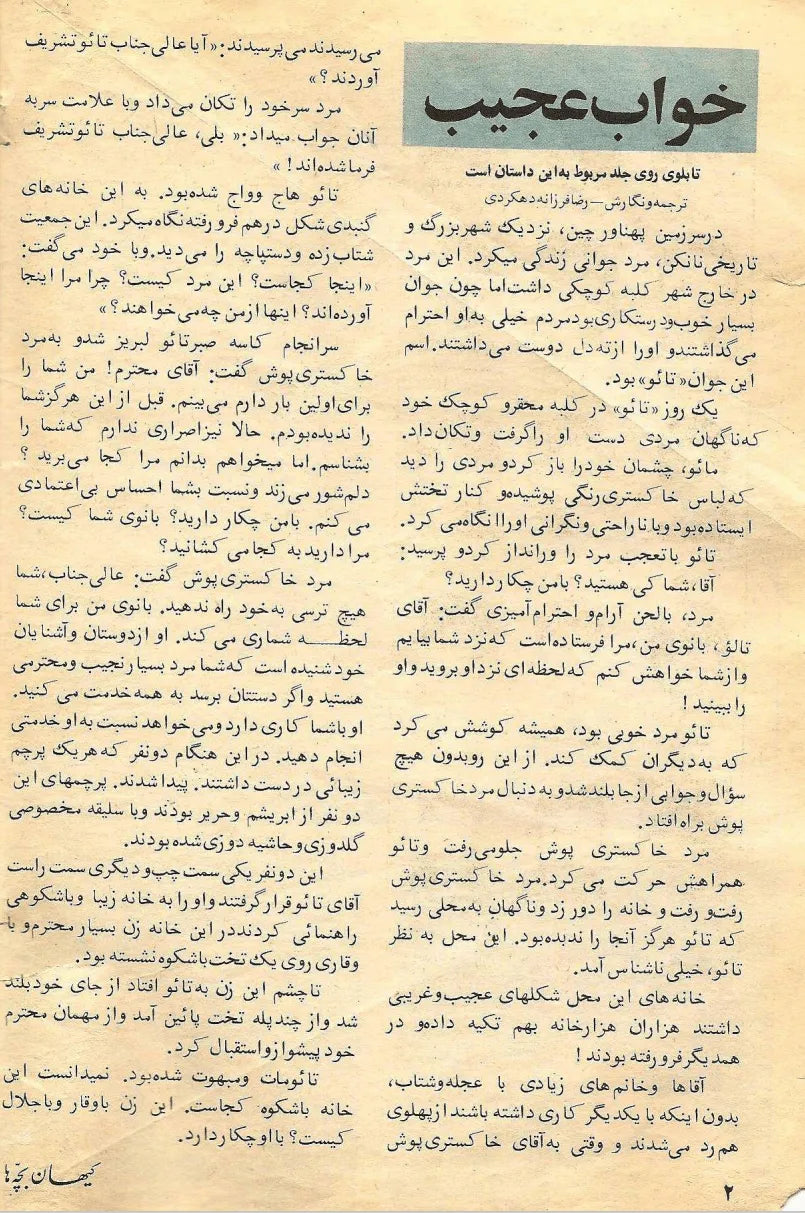 خواب عجیب
تابلوی روی جلد مربوط به این داستان است
ترجمه و نگارش — رضا فرزانه دهکردی
در سرزمین پهناور چین، نزدیک شهر بزرگ و
تاریخی نانکن، مرد جوانی زندگی میکرد. این مرد
در خارج شهر کلبه کوچکی داشت اما چون جوان
بسیار خوب و درستکاری بود مردم خیلی به او احترام
می گذاشتند و او را از ته دل دوست می داشتند. اسم
این جوان «تائو» بود.
یک روز «تائو» در کلبه محقر و کوچک خود
که ناگهان مردی دست او را گرفت و تکان داد.
مائو، چشمان خود را باز کرد و مردی را دید
که لباس خاکستری رنگی پوشیده و کنار تختش
ایستاده بود و با ناراحتی و نگرانی او راا نگاه می کرد.
تائو با تعجب مرد را ورانداز کرد و پرسید:
آقا، شما کی هستید؟ با من چکار دارید؟
مرد، بالحن آرام و احترام آمیزی گفت: آقای
تالؤ، بانوی من، مرا فرستاده است که نزد شما بیایم
و از شما خواهش کنم که لحظه ای نزد او بروید و او
را ببینید !
تائو مرد خوبی بود، همیشه کوشش می کرد
که به دیگران کمک کند. از این رو بدون هیچ
سؤال و جوابی از جا بلند شد و به دنبال مرد خاکستری
پوش براه افتاد.
مرد خاکستری پوش جلو می رفت و تائو
همراهش حرکت می کرد. مرد خاکستری پوش
رفت و رفت و خانه را دور زد و ناگهان به محلی رسید
که تائو هرگز آنجا را ندیده بود. این محل به نظر
تائو، خیلی ناشناس آمد.
خانه های این محل شکلهای عجیب و غریبی
داشتند هزاران هزار خانه بهم تکیه داده و در
همدیگر فرو رفته بودند !
آقاها و خانم های زیادی با عجله و شتاب،
بدون اینکه با یکدیگر کاری داشته باشند از پهلوی
هم رد می شدند و وقتی به آقای خاکستری پوش
می رسیدند می پرسیدند: «آیا عالی جناب تائو تشریف
آوردند؟»
مرد سر خود را تکان می داد و با علامت سر به
آنان جواب میداد: «بلی، عالی جناب تائو تشریف
فرما شده اند ! »
تائو هاج و واج شده بود. به این خانه های
گنبدی شکل در هم فرو رفته نگاه میکرد. این جمعیت
شتاب زده و دستپاچه را می دید. و با خود می گفت:
«اینجا کجاست؟ این مرد کیست؟ چرا مرا اینجا
آورده اند؟ اینها از من چه می خواهند؟»
سرانجام کاسه صبر تائو لبریز شد و به مرد
خاکستری پوش گفت: آقای محترم! من شما را
برای اولین بار دارم می بینم. قبل از این هرگز شما
را ندیده بودم. حالا نیز اصراری ندارم که شما را
بشناسم. اما میخواهم بدانم مرا کجا می برید ؟
دلم شور می زند و نسبت بشما احساس بی اعتمادی
می کنم. با من چکار دارید؟ بانوی شما کیست؟
مرا دارید به کجا می کشانید؟
مرد خاکستری پوش گفت: عالی جناب، شما
هیچ ترسی به خود راه ندهید. بانوی من برای شما
لحظه شماری می کند. او از دوستان و آشنایان
خود شنیده است که شما مرد بسیار نجیب و محترمی
هستید و اگر دستتان برسد به همه خدمت می کنید.
او با شما کاری دارد و می خواهد نسبت به او خدمتی
انجام دهید. در این هنگام دو نفر که هر یک پرچم
زیبائی در دست داشتند. پیدا شدند. پرچمهای این
دو نفر از ابریشم و حریر بودند و با سلیقه مخصوصی
گلدوزی و حاشیه دوزی شده بودند.
این دو نفر یکی سمت چپ و دیگری سمت راست
آقای تائو قرار گرفتند و او را به خانه زیبا و باشکوهی
راهنمائی کردند در این خانه زن بسیار محترم و با
وقاری روی یک تخت باشکوه نشسته بود.
تا چشم این زن به تائو افتاد از جای خود بلند
شد و از چند پله تخت پائین آمد و از مهمان محترم
خود پیشواز و استقبال کرد.
تائو مات و مبهوت شده بود. نمیدانست این
خانه باشکوه کجاست. این زن باوقار و باجلال
کیست؟ با او چکار دارد.
کیهان بچه ها
۲